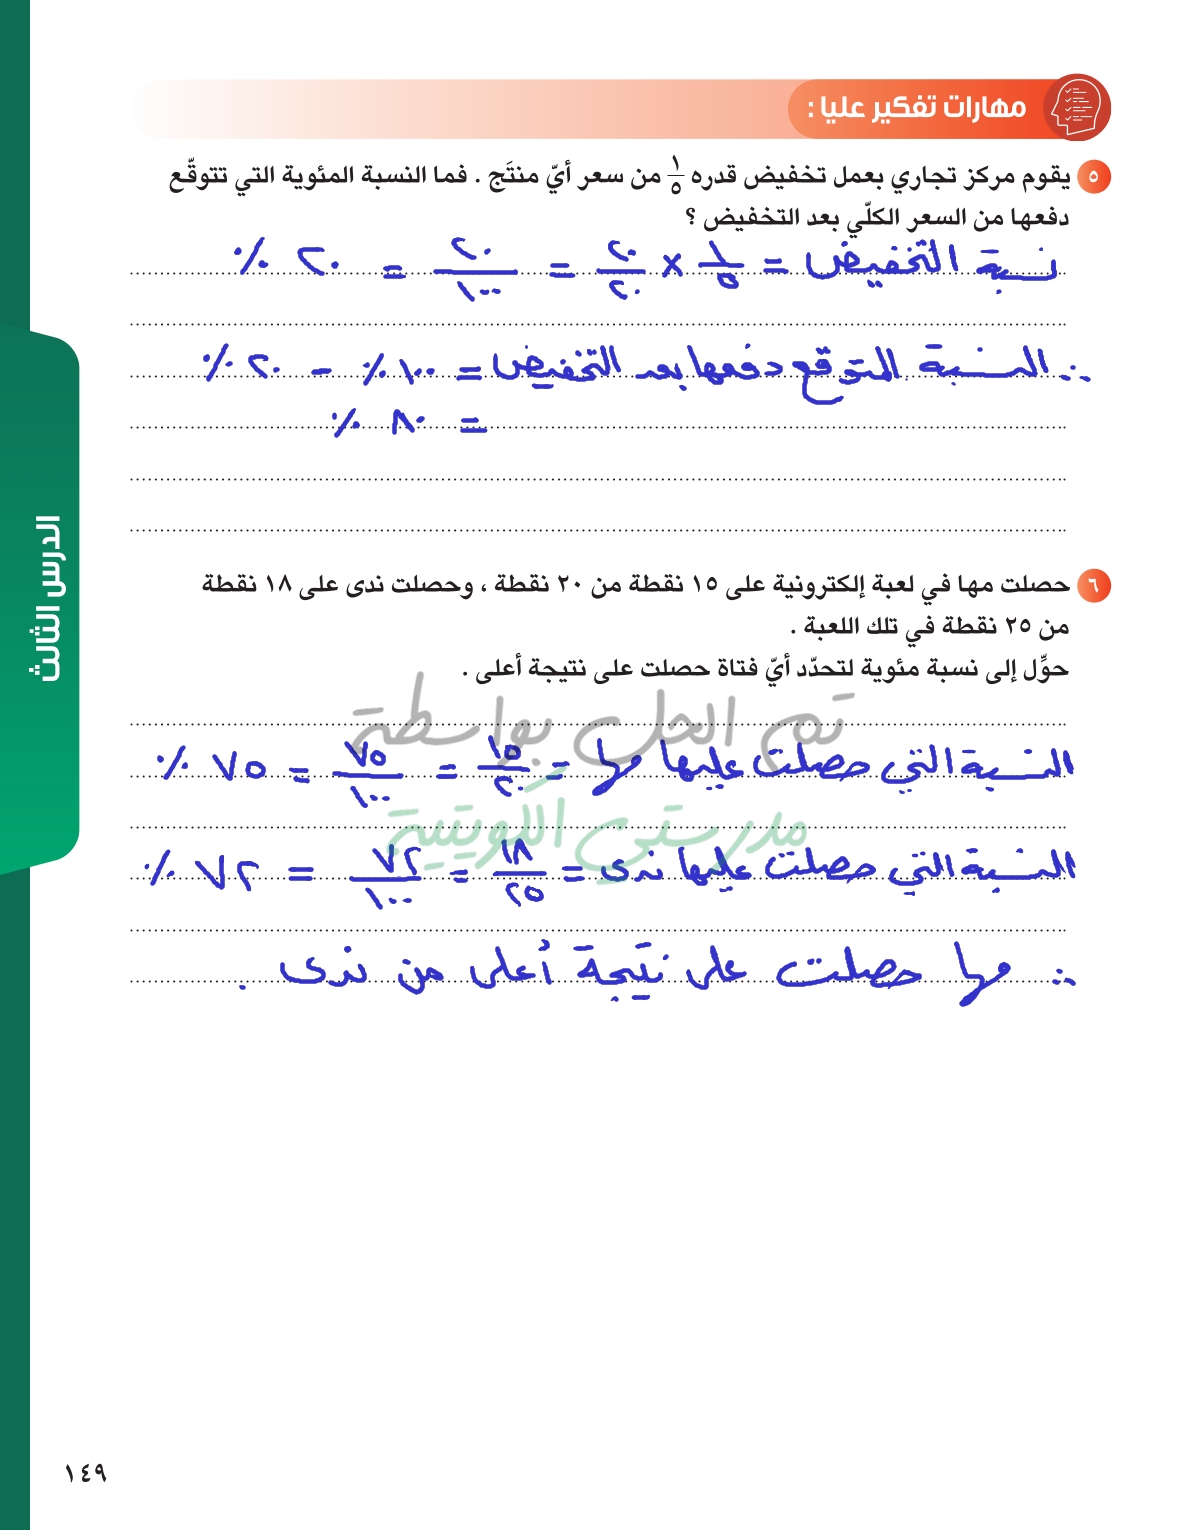 مهارات تفكير عليا :
٥ يقوم مركز تجاري بعمل تخفيض قدره ١/٥ من سعر أيّ منتَج . فما النسبة المئوية التي تتوقّع
دفعها من السعر الكلّي بعد التخفيض ؟
نسبة التخفيض = ١/٥ × ٢٠/٢٠ = ٢٠/١٠٠ = ٢٠ ٪
∴ النسبة المتوقع دفعها بعد التخفيض = ١٠٠ ٪ - ٢٠ ٪
= ٨٠ ٪
٦ حصلت مها في لعبة إلكترونية على ١٥ نقطة من ٢٠ نقطة ، وحصلت ندى على ١٨ نقطة
من ٢٥ نقطة في تلك اللعبة .
حوِّل إلى نسبة مئوية لتحدّد أيّ فتاة حصلت على نتيجة أعلى .
تم الحل بواسطة
النسبة التي حصلت عليها مها = ١٥/٢٠ = ٧٥/١٠٠ = ٧٥ ٪
مدرستي الكويتية
النسبة التي حصلت عليها ندى = ١٨/٢٥ = ٧٢/١٠٠ = ٧٢ ٪
∴ مها حصلت على نتيجة أعلى من ندى .
الدرس الثالث
١٤٩